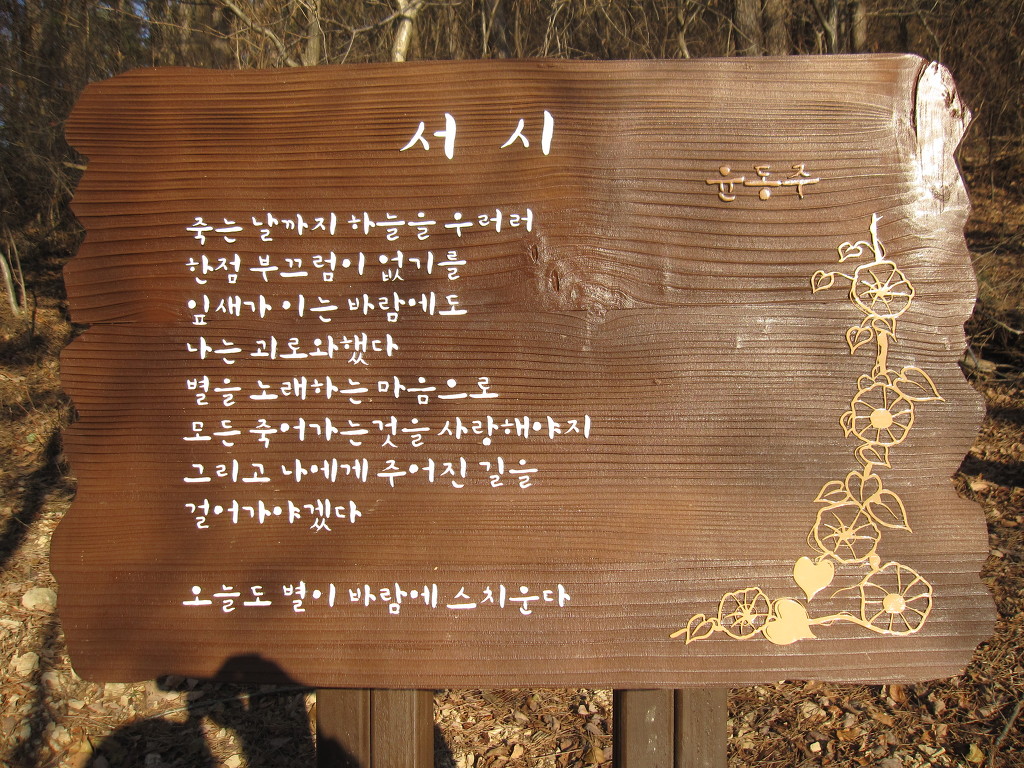 서 시
윤동주
죽는 날까지 하늘을 우러러
한점 부끄럼이 없기를
잎새가 이는 바람에도
나는 괴로와했다
별을 노래하는 마음으로
모든 죽어가는것을 사랑해야지
그리고 나에게 주어진 길을
걸어가야겠다
오늘도 별이 바람에 스치운다